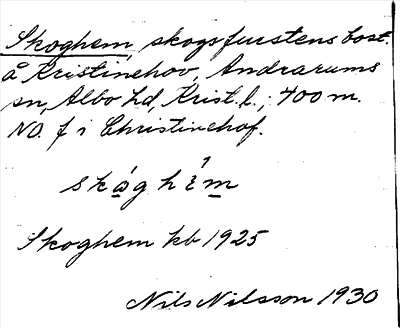 Skoghem, skogsfurstens bost.
å Kristinehov, Andrarums
sn, Albo hd, Krist. l.; 400 m.
NO. f i Christinehof.
skóghèm
Skoghem kb 1925
Nils Nilsson 1930